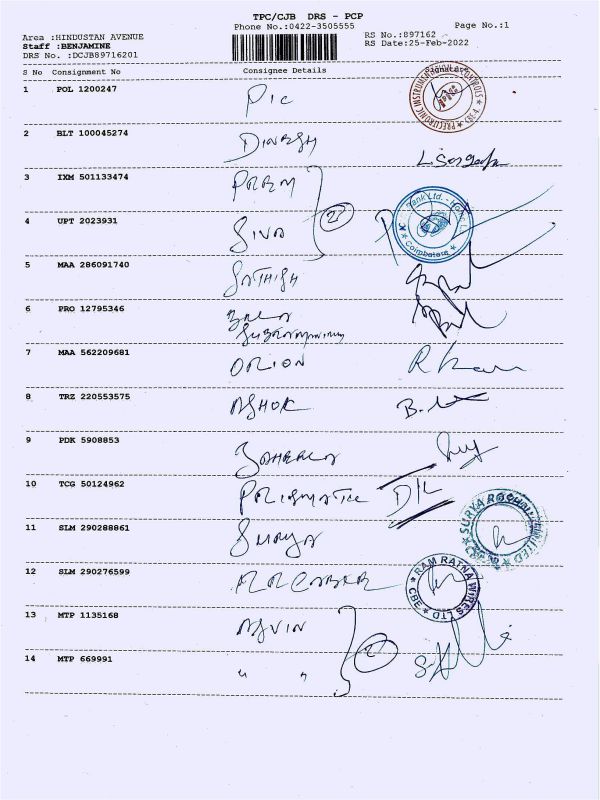 TPC/CJB DRS - PCP
Phone No.:0422-3505555 Page No.:1
Area :HINDUSTAN AVENUE RS No.:897162
Staff :BENJAMINE RS Date:25-Feb-2022
DRS No. :DCJB89716201
S No Consignment No Consignee Details Signature
1 POL 1200247 Pic
2 BLT 100045274 DINESH
3 IXM 501133474 PREM
4 UPT 2023931 SIVA
5 MAA 286091740 SATHISH
6 PRO 12795346 BALA
7 MAA 562209681 ORION
8 TRZ 220553575 ASHOK
9 PDK 5908853
10 TCG 50124962 PRISMATIC D/L
11 SLM 290288861 SURYA
12 SLM 290276599
13 MTP 1135168 ASVIN
14 MTP 669991 " "
PRECITRONIC INSTRUMENTATION & CONTROLS
Bank Ltd.
Coimbatore
SURYA
RAM RATNA WIRES LTD
CBE